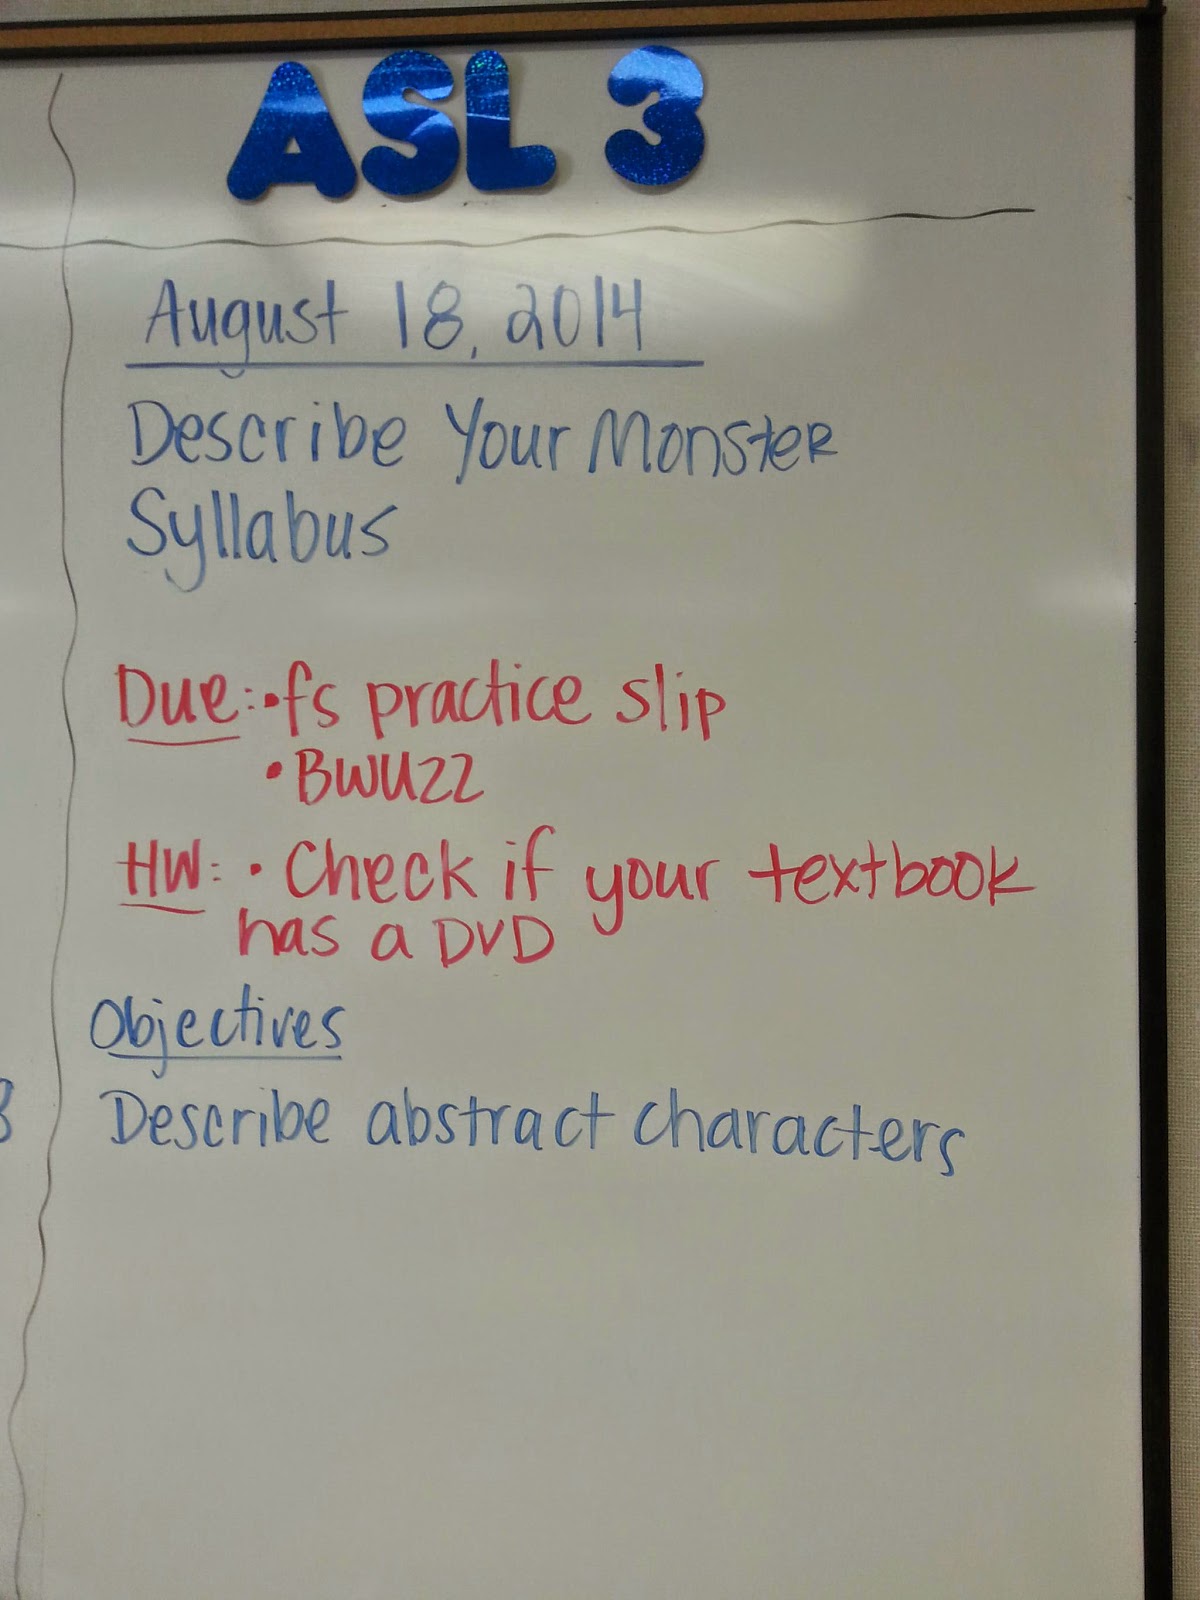 ASL 3
August 18, 2014
Describe Your Monster
Syllabus
Due: • fs practice slip
• BWUZZ
HW: • Check if your textbook
has a DVD
Objectives
Describe abstract characters